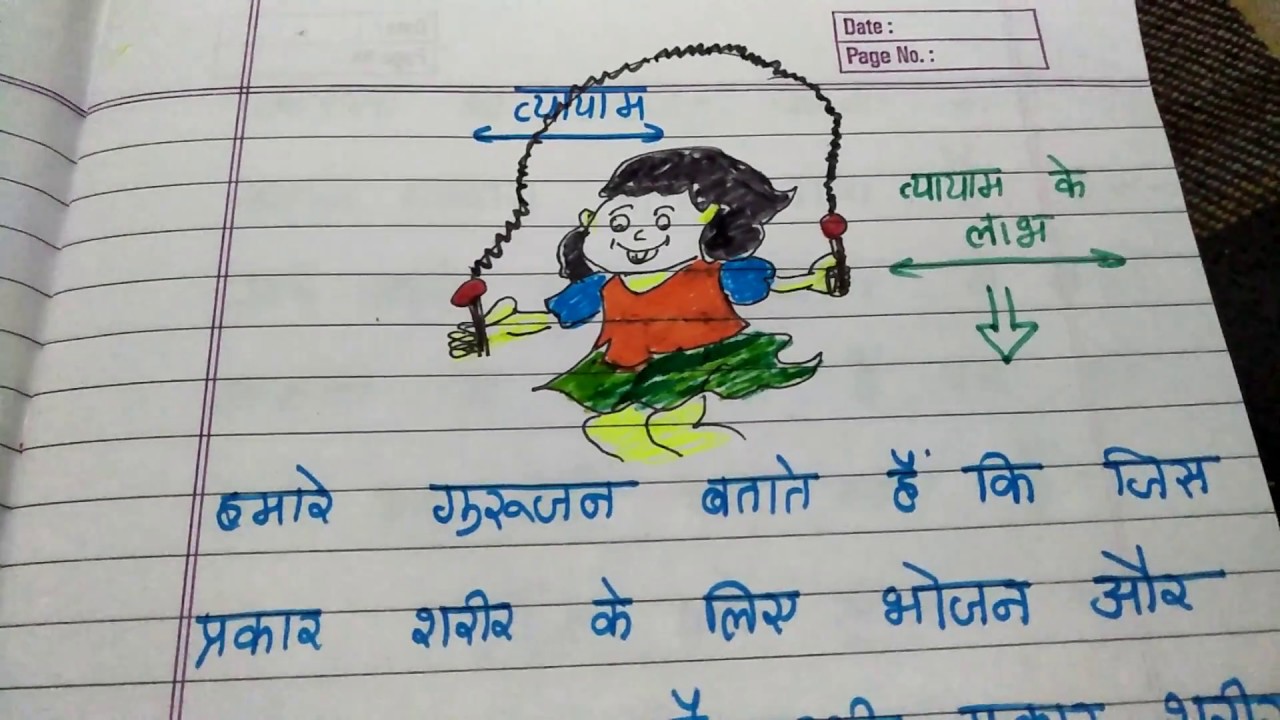 Date :
Page No. :
व्यायाम
व्यायाम के
लाभ
हमारे गुरूजन बताते हैं कि जिस
प्रकार शरीर के लिए भोजन और
है